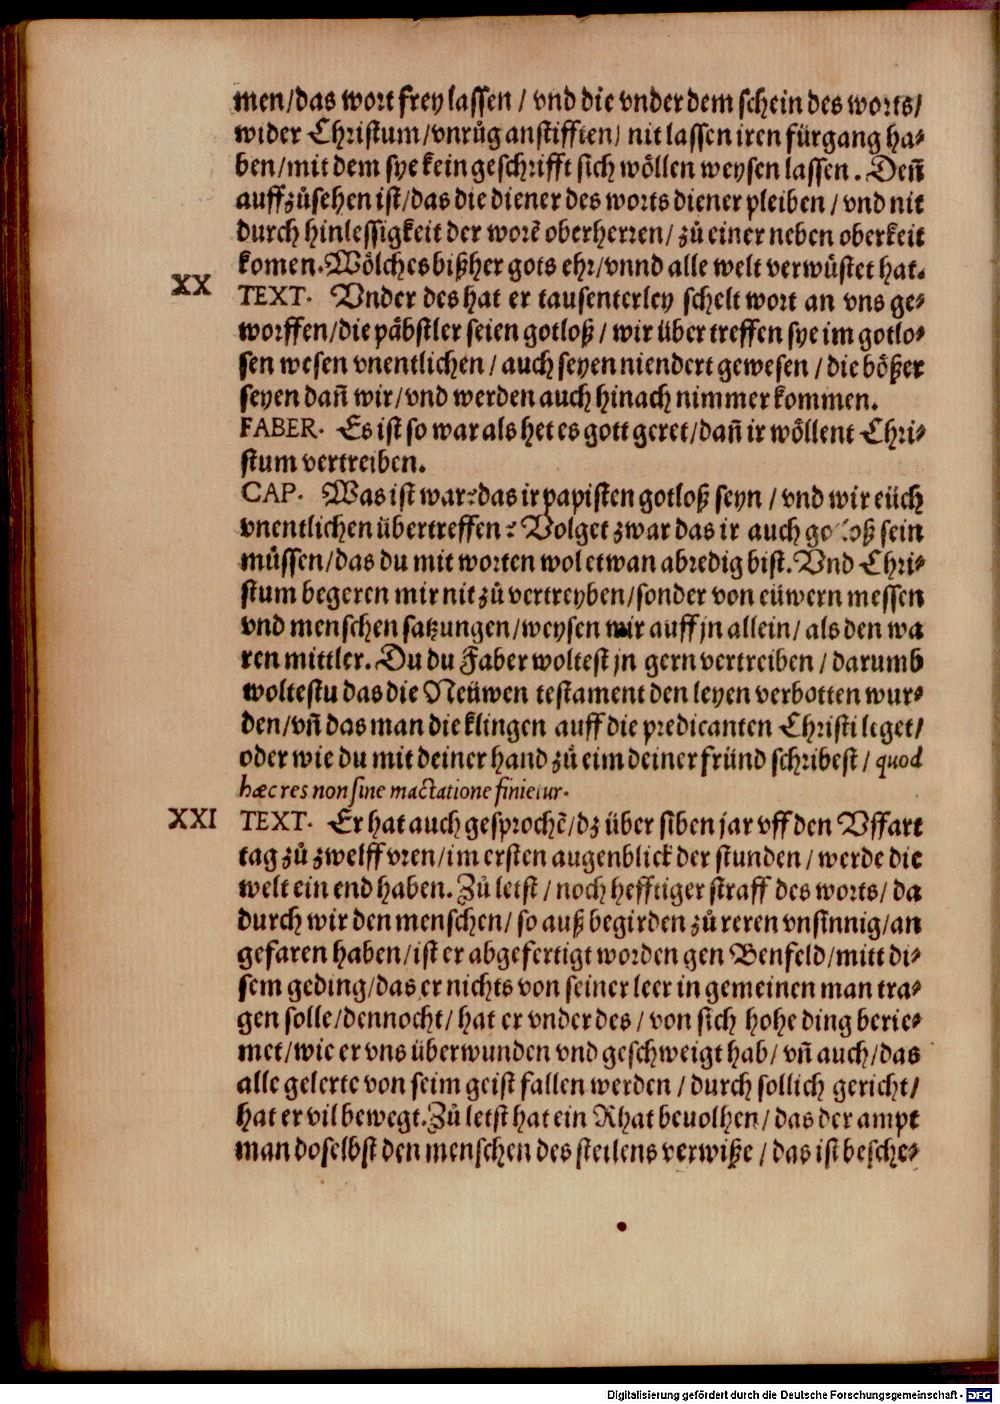 men/das wort frey lassen / vnd die vnder dem schein des worts/
wider Christum/vnrůg anstifften/ nit lassen iren fürgang ha⸗
ben/mit dem sye kein geschrifft sich wöllen weysen lassen. Deñ
auffzůsehen ist/das die diener des worts diener pleiben / vnd nit
durch hinlessigkeit der worẽ oberherren/ zů einer neben oberkeit
komen. Wölches bißher gots ehr/vnnd alle welt verwüstet hat.
XX
TEXT. Vnder des hat er tausenterley schelt wort an vns ge⸗
worffen/die päbstler seien gotloß / wir über treffen sye im gotlo⸗
sen wesen vnentlichen / auch seyen niendert gewesen / die bößer
seyen dañ wir/vnd werden auch hinach nimmer kommen.
FABER. Es ist so war als het es gott geret/dañ ir wöllent Chri⸗
stum vertreiben.
CAP. Was ist war? das ir papisten gotloß seyn / vnd wir eüch
vnentlichen übertreffen? Volget zwar das ir auch gotloß sein
müssen/das du mit worten wol etwan abredig bist. Vnd Chri⸗
stum begeren mir nit zů vertreyben/sonder von eüwern messen
vnd menschen satzungen/weysen mir auff jn allein/ als den wa
ren mittler. Du du Faber woltest jn gern vertreiben / darumb
woltestu das die Neüwen testament den leyen verbotten wur⸗
den/vñ das man die klingen auff die predicanten Christi leget/
oder wie du mit deiner hand zů eim deiner fründ schribest / quod
hæc res non sine mactatione finietur.
XXI
TEXT. Er hat auch gesprochẽ/dz über siben jar vff den Vffart
tag zů zwelff vren/im ersten augenblick der stunden/ werde die
welt ein end haben. Zů letst / noch hefftiger straff des worts/ da
durch wir den menschen/ so auß begirden zů reren vnsinnig/an
gefaren haben/ist er abgefertigt worden gen Benfeld/mitt di⸗
sem geding/das er nichts von seiner leer in gemeinen man tra⸗
gen solle/dennocht/ hat er vnder des / von sich hohe ding berie⸗
met/wie er vns überwunden vnd geschweigt hab/ vñ auch/das
alle gelerte von seim geist fallen werden / durch sollich gericht/
hat er vil bewegt. Zů letst hat ein Rhat beuolhen/ das der ampt
man doselbst den menschen des steilens verwiße / das ist besche⸗
Digitalisierung gefördert durch die Deutsche Forschungsgemeinschaft - DFG